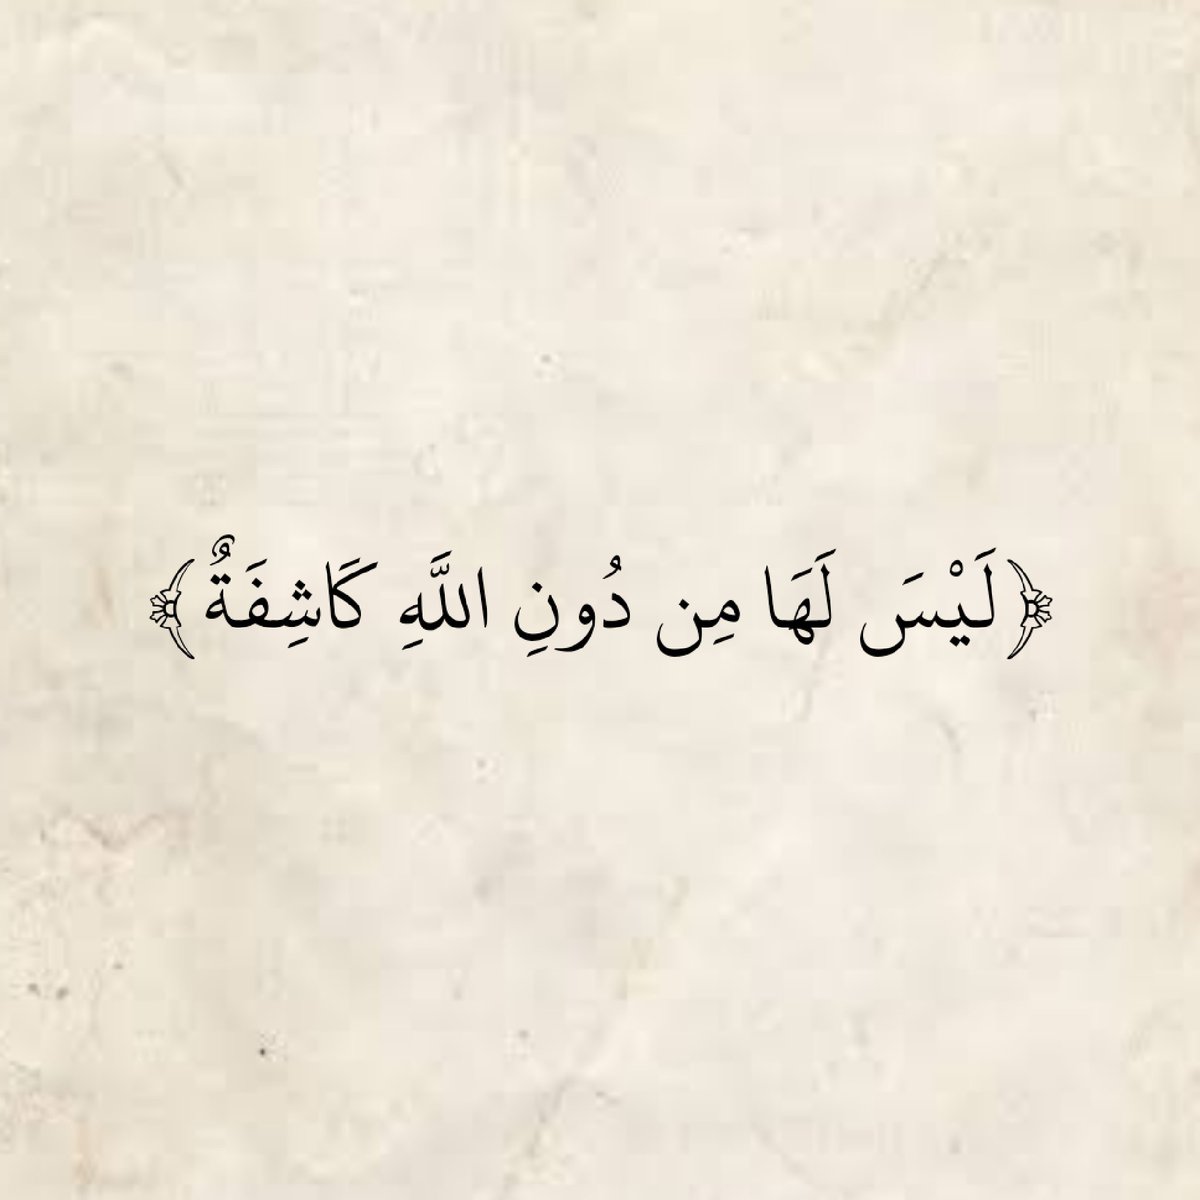 ﴿لَيْسَ لَهَا مِن دُونِ اللَّهِ كَاشِفَةٌ﴾